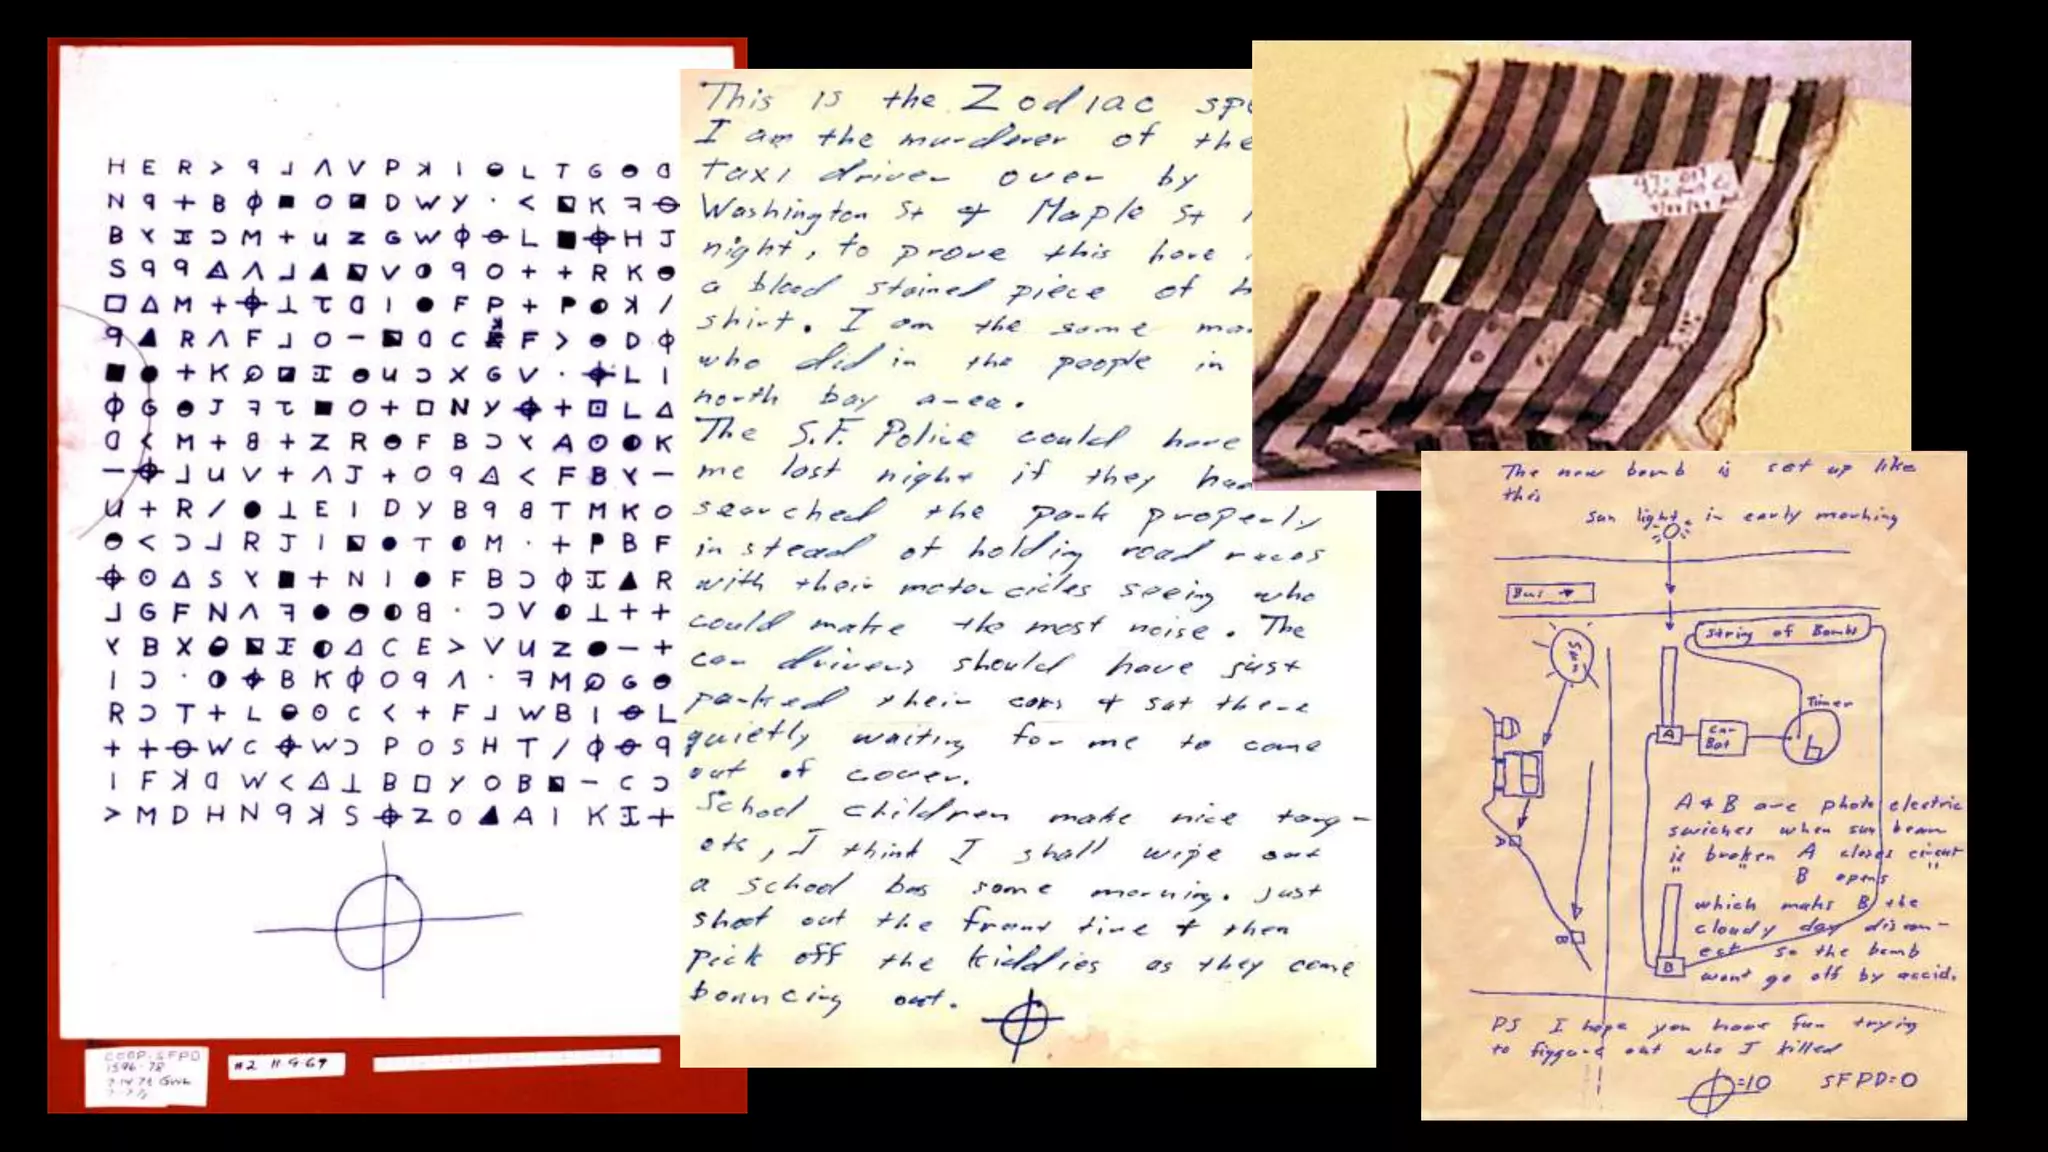 H E R > ꟼ ⅃ Λ V P ꓘ I ◒ L T G ◒ ᗡ
N ꟼ + B ϕ ■ O ◪ D W Y · < ◪ K ꟻ ⊖
B Y Ɪ Ɔ M + U Z G W ϕ ⊖ L ■ ⌖ H J
S ꟼ ꟼ △ Λ ⅃ ▲ ◪ V ◑ ꟼ O + + R K ◒
□ △ M + ⌖ ⊥ τ ᗡ I ● F P + P ◑ ꓘ /
ꟼ ▲ R Λ F ⅃ O − ◪ ᗡ C F > ◒ D ϕ
■ ● + K ∅ ◪ Ɪ ◒ U Ɔ X G V · ⌖ L I
ϕ G ◒ J ꟻ τ ■ O + □ N Y ⌖ + ⊡ L △
ᗡ < M + 8 + Z R ◒ F B Ɔ Y A ⊙ ◑ K
− ⌖ ⅃ U V + Λ J + O ꟼ △ < F B Y −
U + R / ● ⊥ E I D Y B ꟼ 8 T M K O
◒ < Ɔ ⅃ R J I ◪ ● T ◑ M · + P B F
⌖ ⊙ △ S Y ■ + N I ● F B Ɔ ϕ Ɪ ▲ R
⅃ G F N Λ ꟻ ● ◒ ◑ 8 · Ɔ V ◑ ⊥ + +
Y B X ◒ ◪ Ɪ ◑ △ C E > V U Z ● − +
I Ɔ · ◑ ⌖ B K ϕ O ꟼ Λ · ꟻ M ∅ G ◒
R Ɔ T + L ◒ ⊙ C < + F ⅃ W B I ⊖ L
+ + ⊖ W C ⌖ W Ɔ P O S H T / ϕ ⊖ ꟼ
I F ꓘ ᗡ W < △ ⊥ B □ Y O B ◪ − C Ɔ
> M D H N ꟼ ꓘ S ⌖ Z O ▲ A I K Ɪ +
CCOP-SFPD
1596-78
#2 11-9-69
This is the Zodiac
I am the murderer of the
taxi driver over by
Washington St & Maple St
night, to prove this here
a blood stained piece of
shirt. I am the same
who did in the people in
north bay area.
The S.F. Police could have
me last night if they
searched the park properly
instead of holding road races
with their motorcicles seeing who
could make the most noise. The
car drivers should have just
parked their cars & sat there
quietly waiting for me to come
out of cover.
School children make nice targ-
ets, I think I shall wipe out
a school bus some morning. Just
shoot out the front tire & then
pick off the kiddies as they come
bouncing out.
The new bomb is set up like
this
sun light in early morning
Bus →
Sun
String of Bombs
Timer
A
Car Bat
A
B
B
A & B are photo electric
swiches when sun beam
is broken A closes circut
" " B opens "
which makes B the
cloudy day discon-
ect so the bomb
wont go off by accid.
PS I hope you have fun trying
to figgure out who I killed
⌖=10 SFPD=0